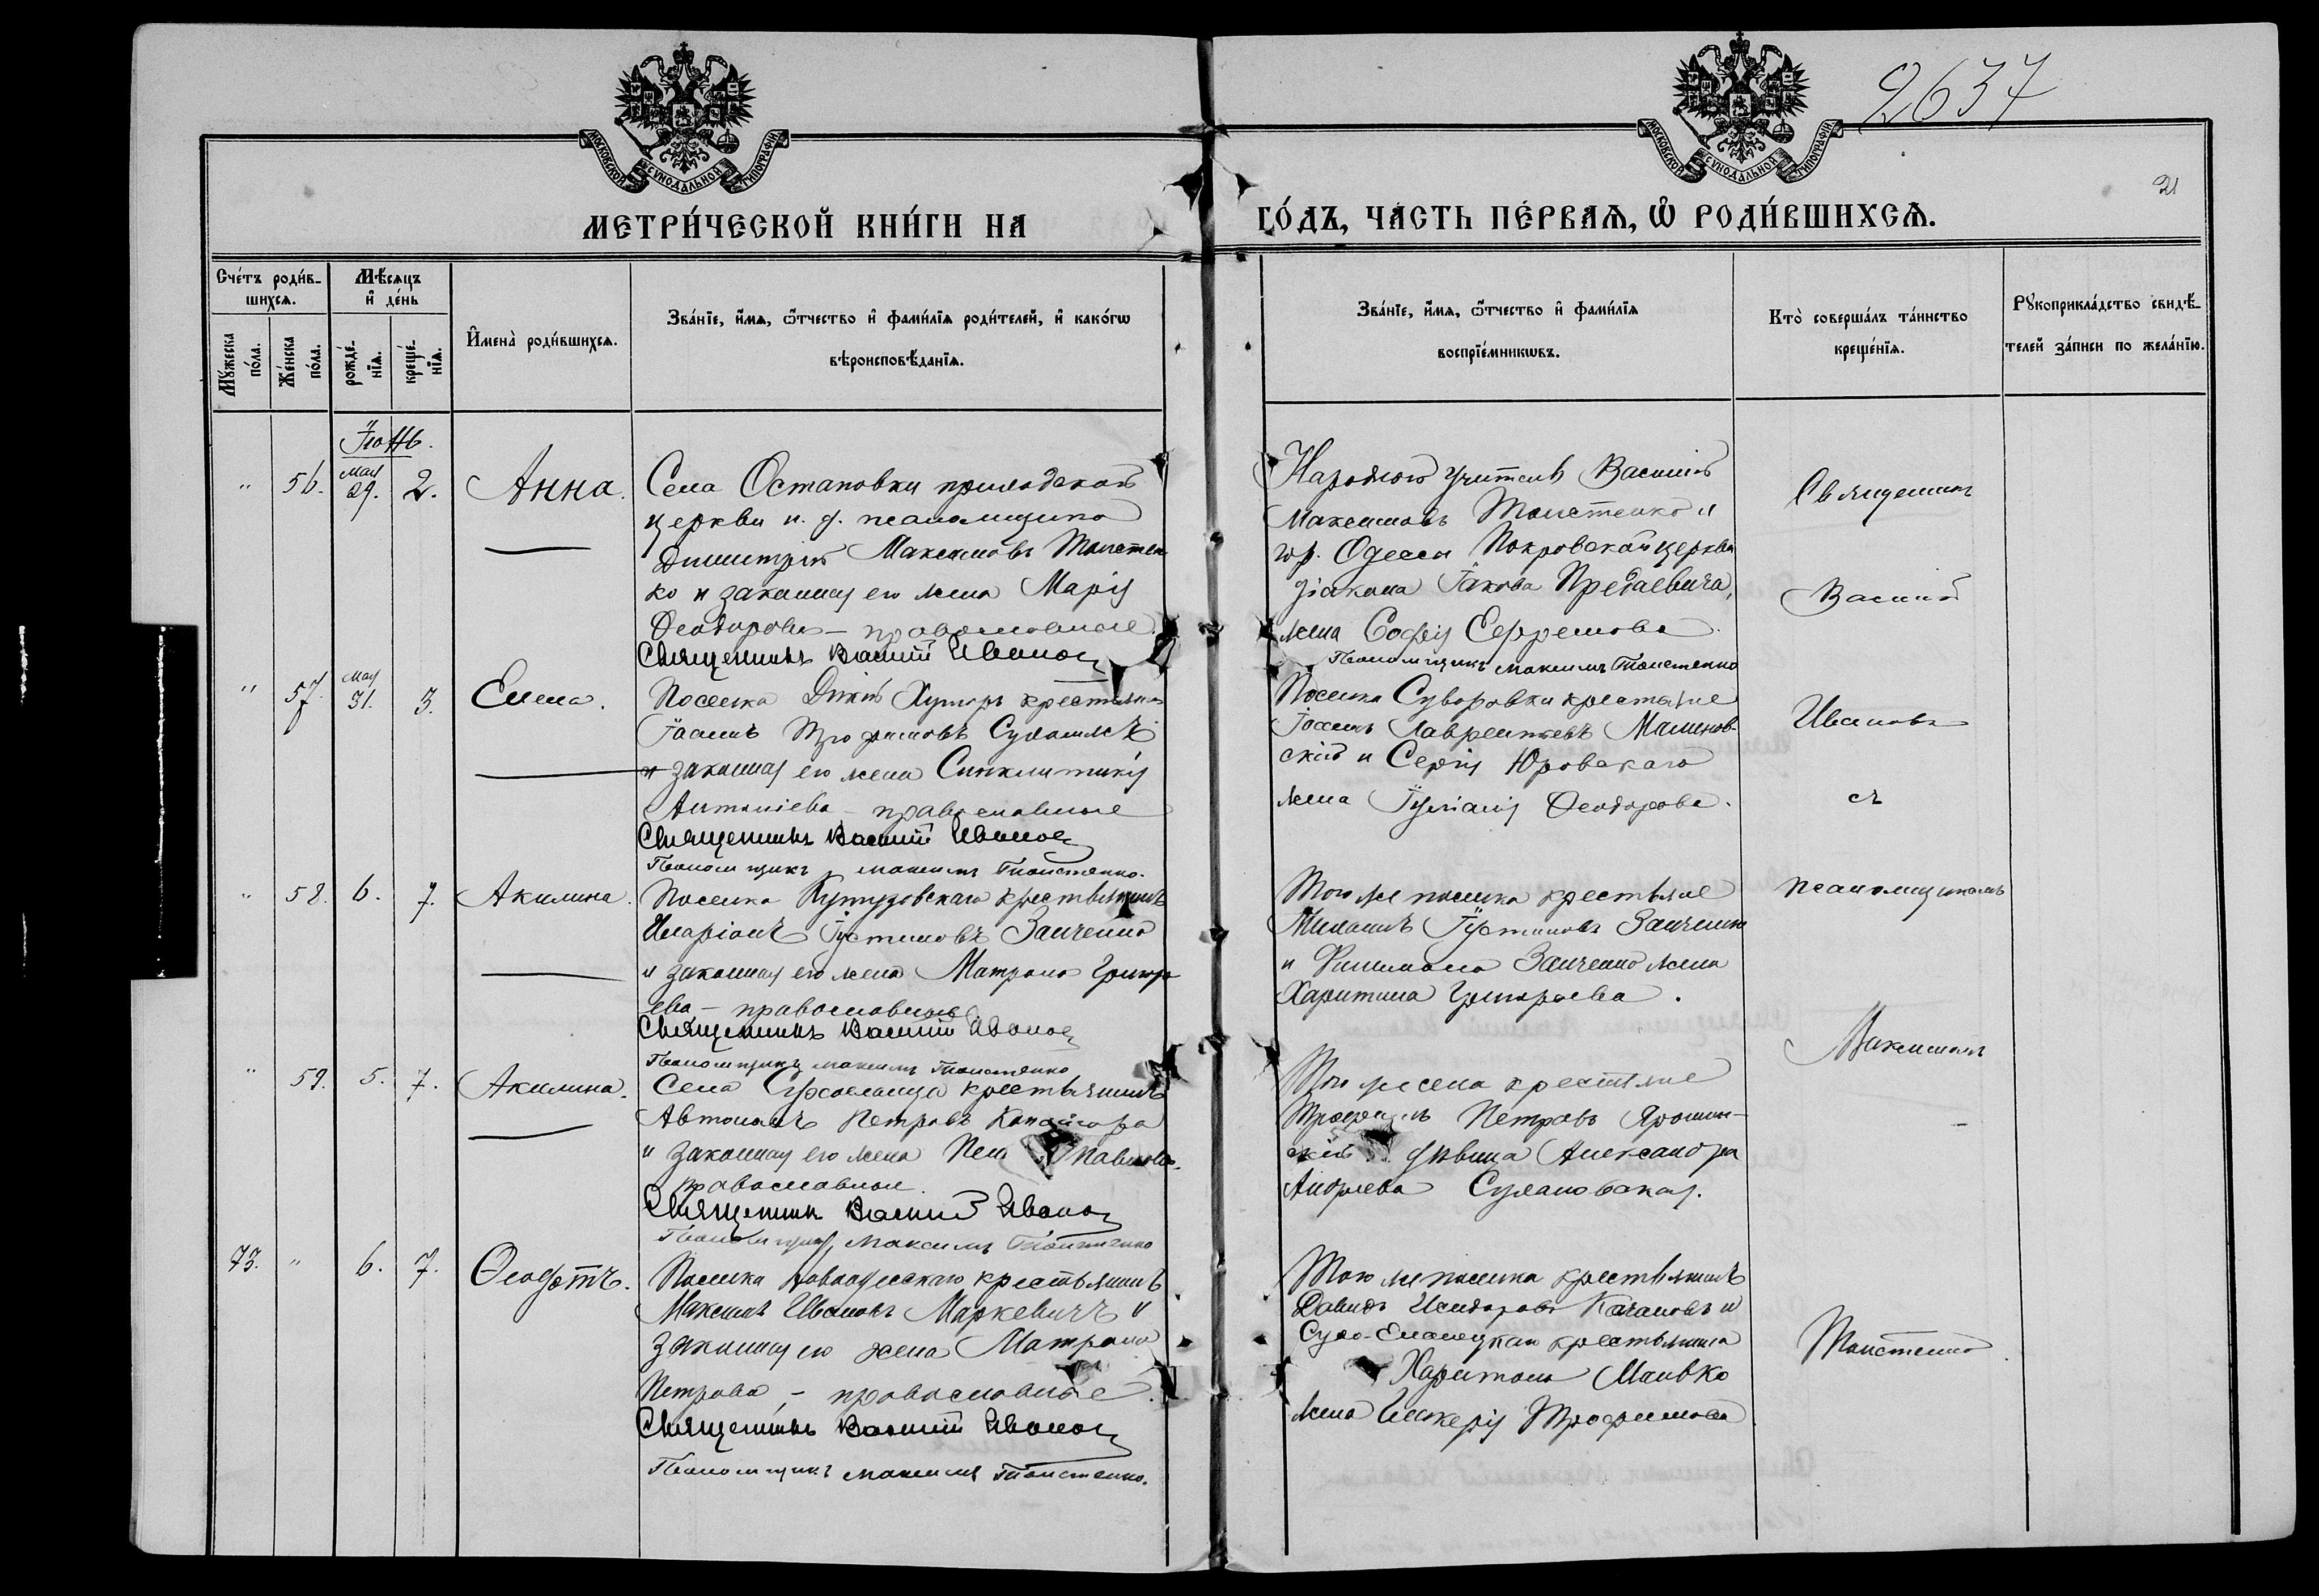 2637
21
МОСКОВСКОЙ СУНОДАЛЬНОЙ ТИПОГРАФІИ
МОСКОВСКОЙ СУНОДАЛЬНОЙ ТИПОГРАФІИ
МЕТРИ́ЧЕСКОЙ КНИ́ГИ НА ГО́ДЪ, ЧА́СТЬ ПЕ́РВАѦ, Ѡ РОДИ́ВШИХСѦ.
Сче́тъ роди́в-
шихсѧ.
Мѣ́сѧцъ
и҆ де́нь
Мꙋ́жеска по́ла.
Же́нска по́ла.
рожде́-
нїѧ.
креще́-
нїѧ.
И҆мена̀ роди́вшихсѧ.
Зва́нїе, и҆́мѧ, ѻ҆́тчество и҆ фами́лїѧ роди́телей, и҆ како́гѡ
вѣроисповѣ́данїѧ.
Зва́нїе, и҆́мѧ, ѻ҆́тчество и҆ фами́лїѧ
воспрїе́мникѡвъ.
Кто̀ соверша́лъ та́инство
креще́нїѧ.
Рꙋкоприкла́дство свидѣ́-
телей за́писи по жела́нїю.
Іюнь.
" 56. Мая 29. 2. Анна.
Села Остановки приходской
церкви и. д. псаломщика
Димитрій Максимовъ Толстен
ко и законная его жена Марія
Ѳеодорова – православные
Священникъ Василій Ивановъ
Народного Учитель Василій
Максимовъ Толстенко и
гор. Одессы Покровской церкви
діакона Іакова
жена Софія Ефремова.
Псаломщикъ Максимъ Толстенко
" 57. Мая 31. 3. Елена.
Поселка Хуторъ крестьянинъ
Іоаннъ Трофимовъ
и законная его жена Синклитикія
Антоніева – православные
Священникъ Василій Ивановъ
Псаломщикъ Максимъ Толстенко.
Поселка Суворовки крестьяне
Іосифъ Лаврентіевъ Малинов-
скій и Сергія Юровскаго
жена Іуліанія Ѳеодорова.
" 58. 6. 7. Акилина.
Поселка Кутузовскаго крестьянинъ
Иларіонъ Іустиновъ Заиченко
и законная его жена Матрона Григорі
ева – православные
Священникъ Василій Ивановъ
Псаломщикъ Максимъ Толстенко
Того же поселка крестьяне
Михаилъ Іустиновъ Заиченко
и Филимона Заиченко жена
Харитина Григорьева.
" 59. 5. 7. Акилина.
Села крестьянинъ
Автономъ Петровъ
и законная его жена Павлова.
православные.
Священникъ Василій Ивановъ
Псаломщикъ Максимъ Толстенко
Того же села крестьяне
Трофимъ Петровъ Ярошин-
скій дѣвица Александра
Андреева Сулановская.
73. " 6. 7. Ѳеофотъ.
Поселка Новоодесскаго крестьянинъ
Максимъ Ивановъ Маркевичъ и
законная его жена Матрона
Петрова, – православные.
Священникъ Василій Ивановъ
Псаломщикъ Максимъ Толстенко.
Того же поселка крестьянинъ
Давидъ Исидоровъ Качановъ и
Сухо-Еланецкая крестьянина
Харитона Маивко
жена Гликерія Трофимова
Священникъ
Василій
Ивановъ
съ
псаломщикомъ
Максимомъ
Толстенко.